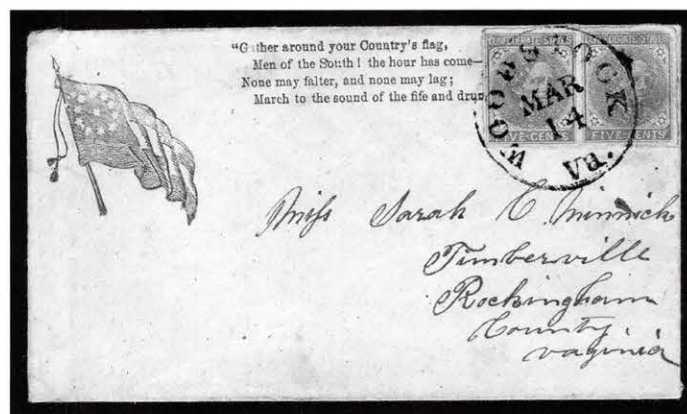 "Gather around your Country's flag,
Men of the South! the hour has come—
None may falter, and none may lag;
March to the sound of the fife and drum
CONFEDERATE STATES
FIVE CENTS
FIVE CENTS
WOODSTOCK
MAR
14
Va.
Miss Sarah C. Minnick
Timberville
Rockingham
County.
Vaginia